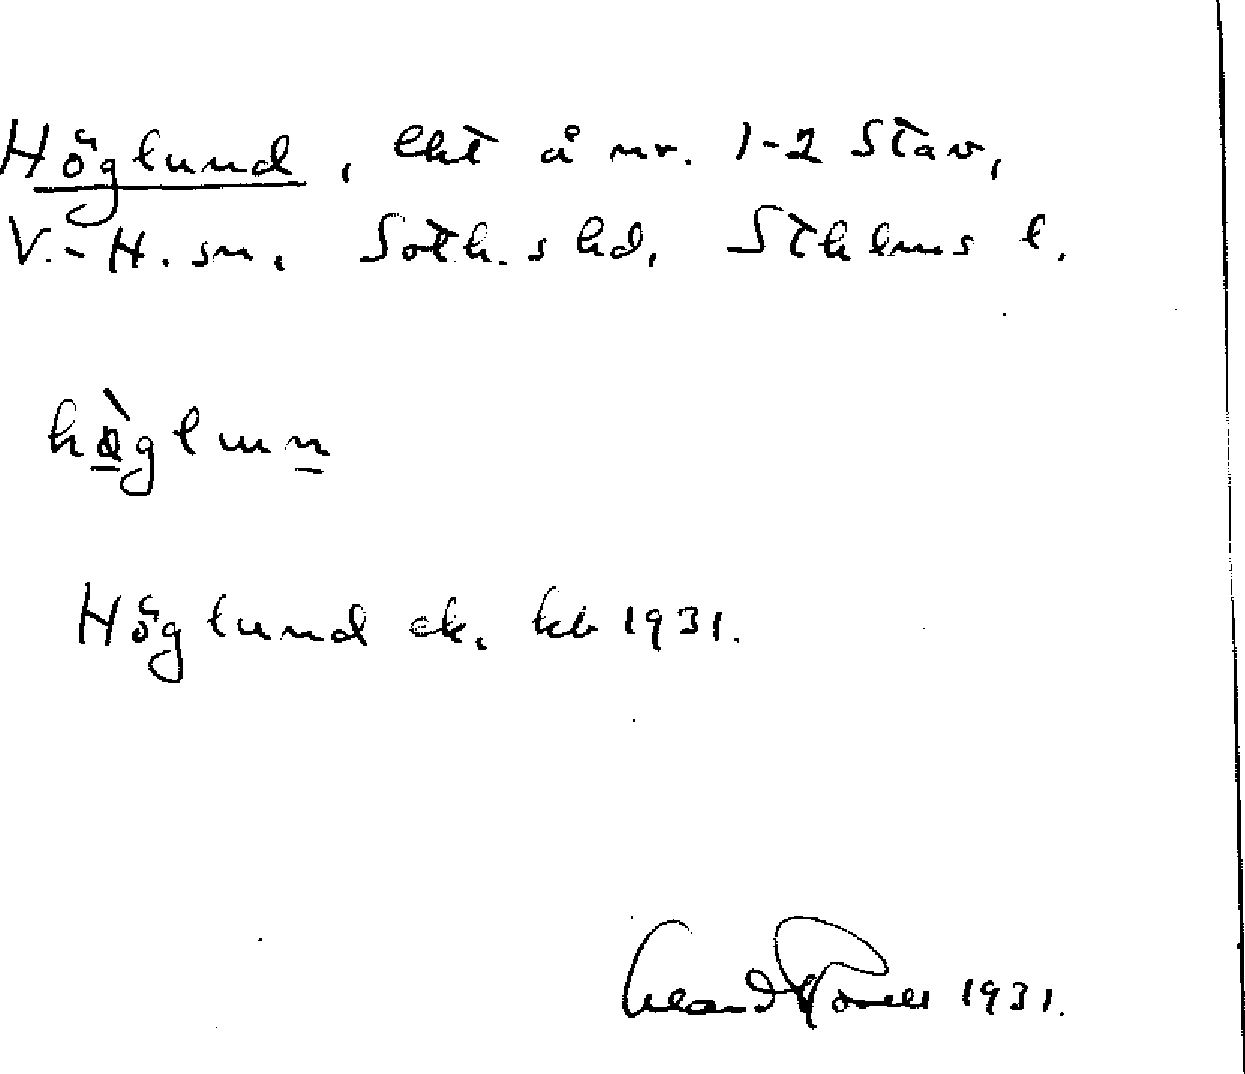 Höglund, lht å nr. 1-2 Stav,
V.-H. sn. Soth.s hd, Sthlms l.
hə̀glun
Höglund ek. kb 1931.
1931.